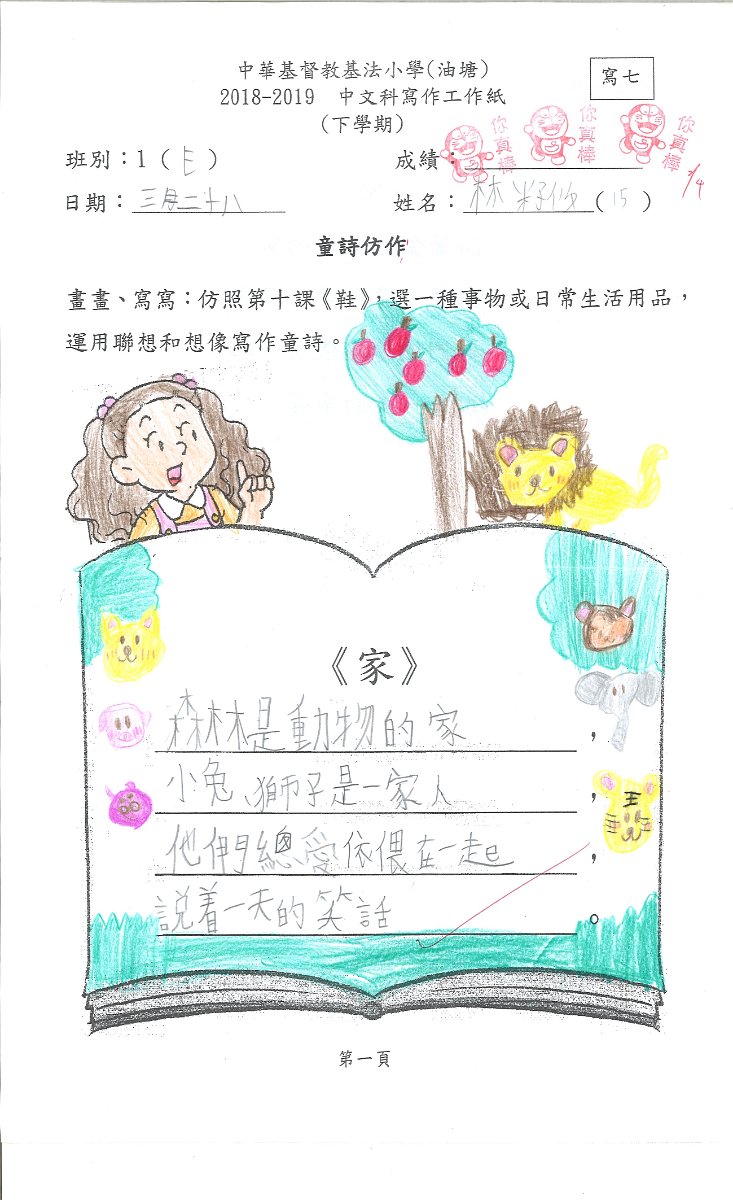 中華基督教基法小學(油塘)
寫七
2018-2019 中文科寫作工作紙
(下學期)
你真棒
你真棒
你真棒
班別：1 ( E )
成績：
4/4
日期：三月二十八
姓名：林 (15)
童詩仿作
畫畫、寫寫：仿照第十課《鞋》，選一種事物或日常生活用品，
運用聯想和想像寫作童詩。
《家》
森林是動物的家，
小兔、獅子是一家人，
他們總愛依偎在一起，
説着一天的笑話。
王
第一頁